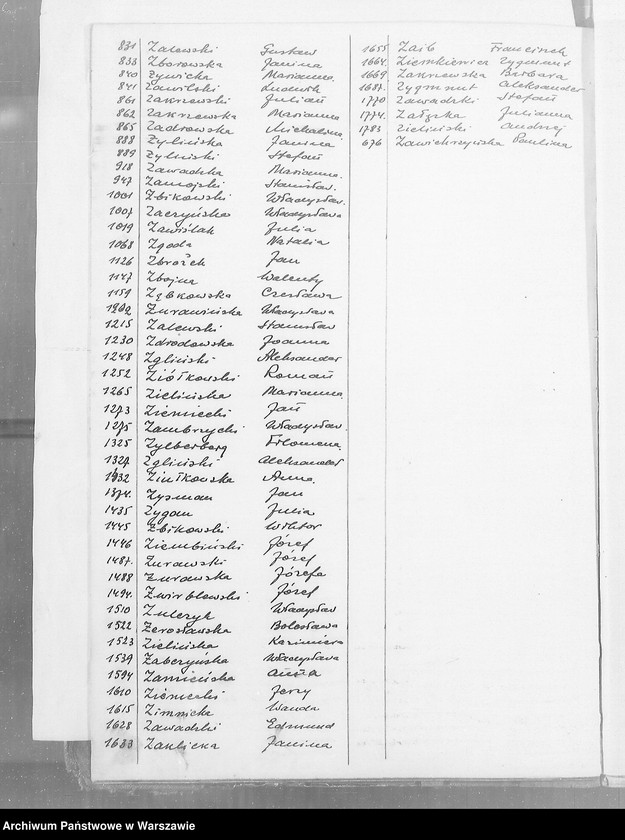 831 Zalewski Gustaw
833 Zborowska Janina
840 Żywicka Marianna
841 Zawilski Ludwik
861 Zakrzewski Julian
862 Zakrzewska Marianna
865 Zadrowska Michalina
888 Żylińska Janina
889 Żyliński Stefan
918 Zawadzka Marianna
947 Zamojski Stanisław
1001 Zbikowski Władysław
1007 Zaczyńska Władysława
1019 Zawiślak Julia
1068 Zgoda Natalia
1126 Zbrożek Jan
1147 Zbojna Walenty
1159 Ząbkowska Czesława
1202 Żurawińska Władysława
1215 Zalewski Stanisław
1230 Zdrodowska Joanna
1248 Zgliński Aleksander
1252 Ziółkowski Roman
1265 Zielińska Marianna
1273 Ziemiecki Jan
1275 Zambrzycki Władysław
1325 Zylberberg Filomena
1327 Zgliński Aleksander
1332 Ziułkowska Anna
1374 Zysman Jan
1435 Zygan Julia
1445 Zbikowski Wiktor
1446 Ziembiński Józef
1487 Żurawski Józef
1488 Żurawska Józefa
1494 Zwirblewski Józef
1510 Zulczyk Władysław
1522 Żerosławska Bolesława
1523 Zielińska Kazimiera
1539 Zabczyńska Władysława
1594 Zamieńska Anna
1610 Ziemecki Jerzy
1615 Zimnicka Wanda
1628 Zawadzki Edmund
1633 Zaklicka Janina
1655 Zaib Franciszek
1664 Ziemkiewicz Zygmunt
1669 Zakrzewska Barbara
1687 Zygmunt Aleksander
1770 Zawadzki Stefan
1774 Załęzka Julianna
1783 Zieliński Andrzej
676 Zawichrzyńska Paulina
Archiwum Państwowe w Warszawie